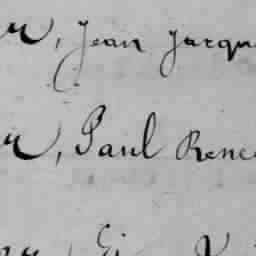 r, Jean Jacqu
r, Paul Rene